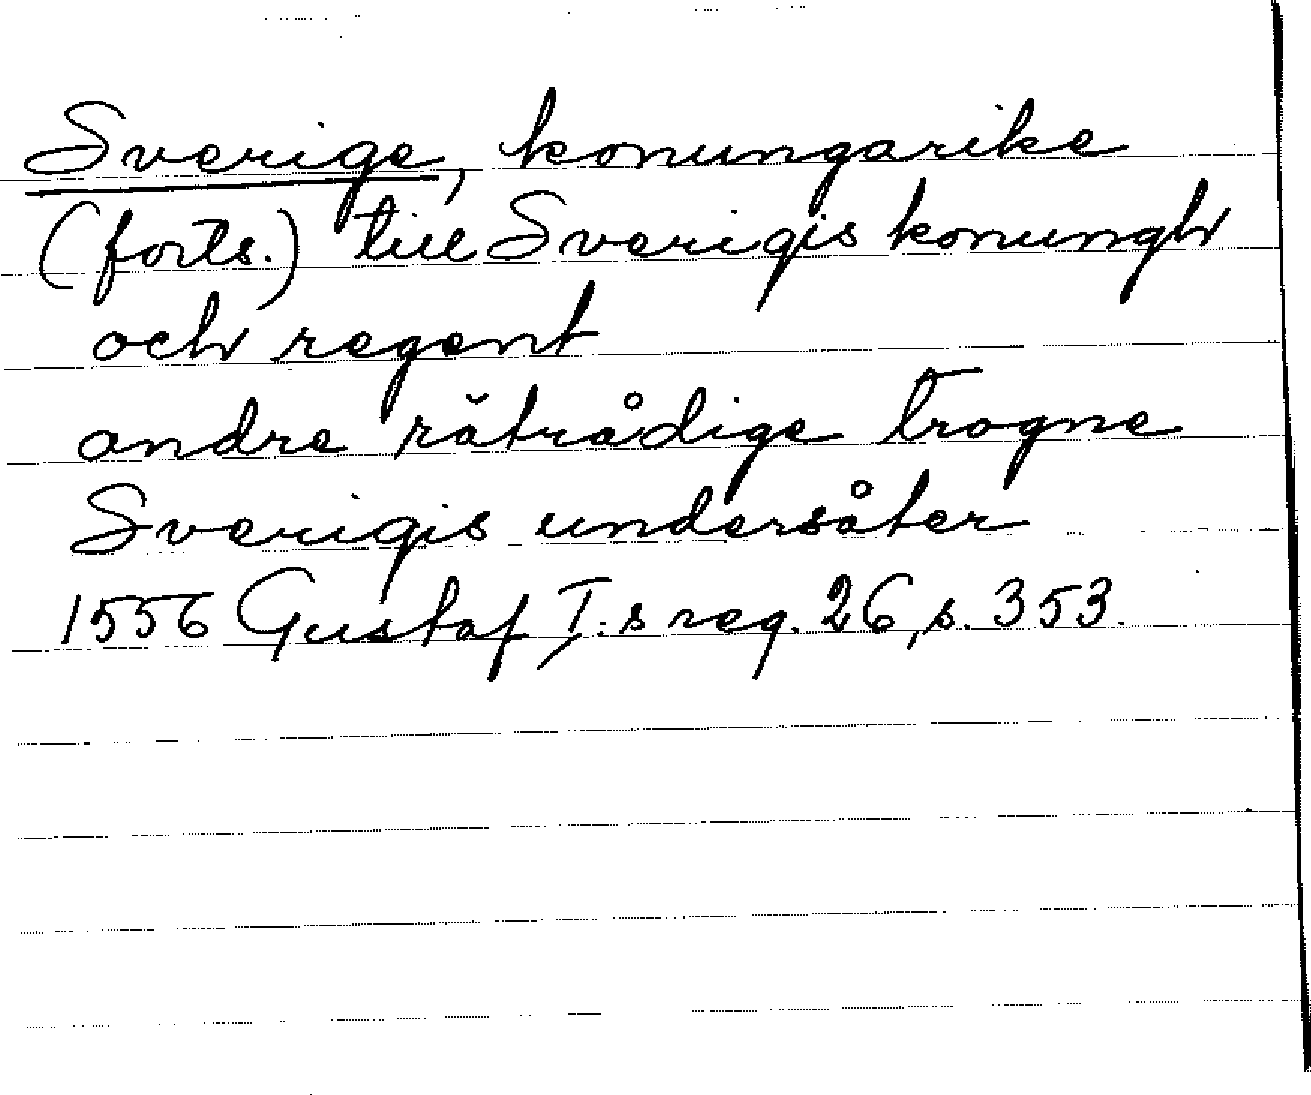 Sverige, konungarike
(forts.) till Sverigis konungh
och regent
andre rätrådige trogne
Sverigis undersåter
1556 Gustaf I:s reg. 26, s. 353.